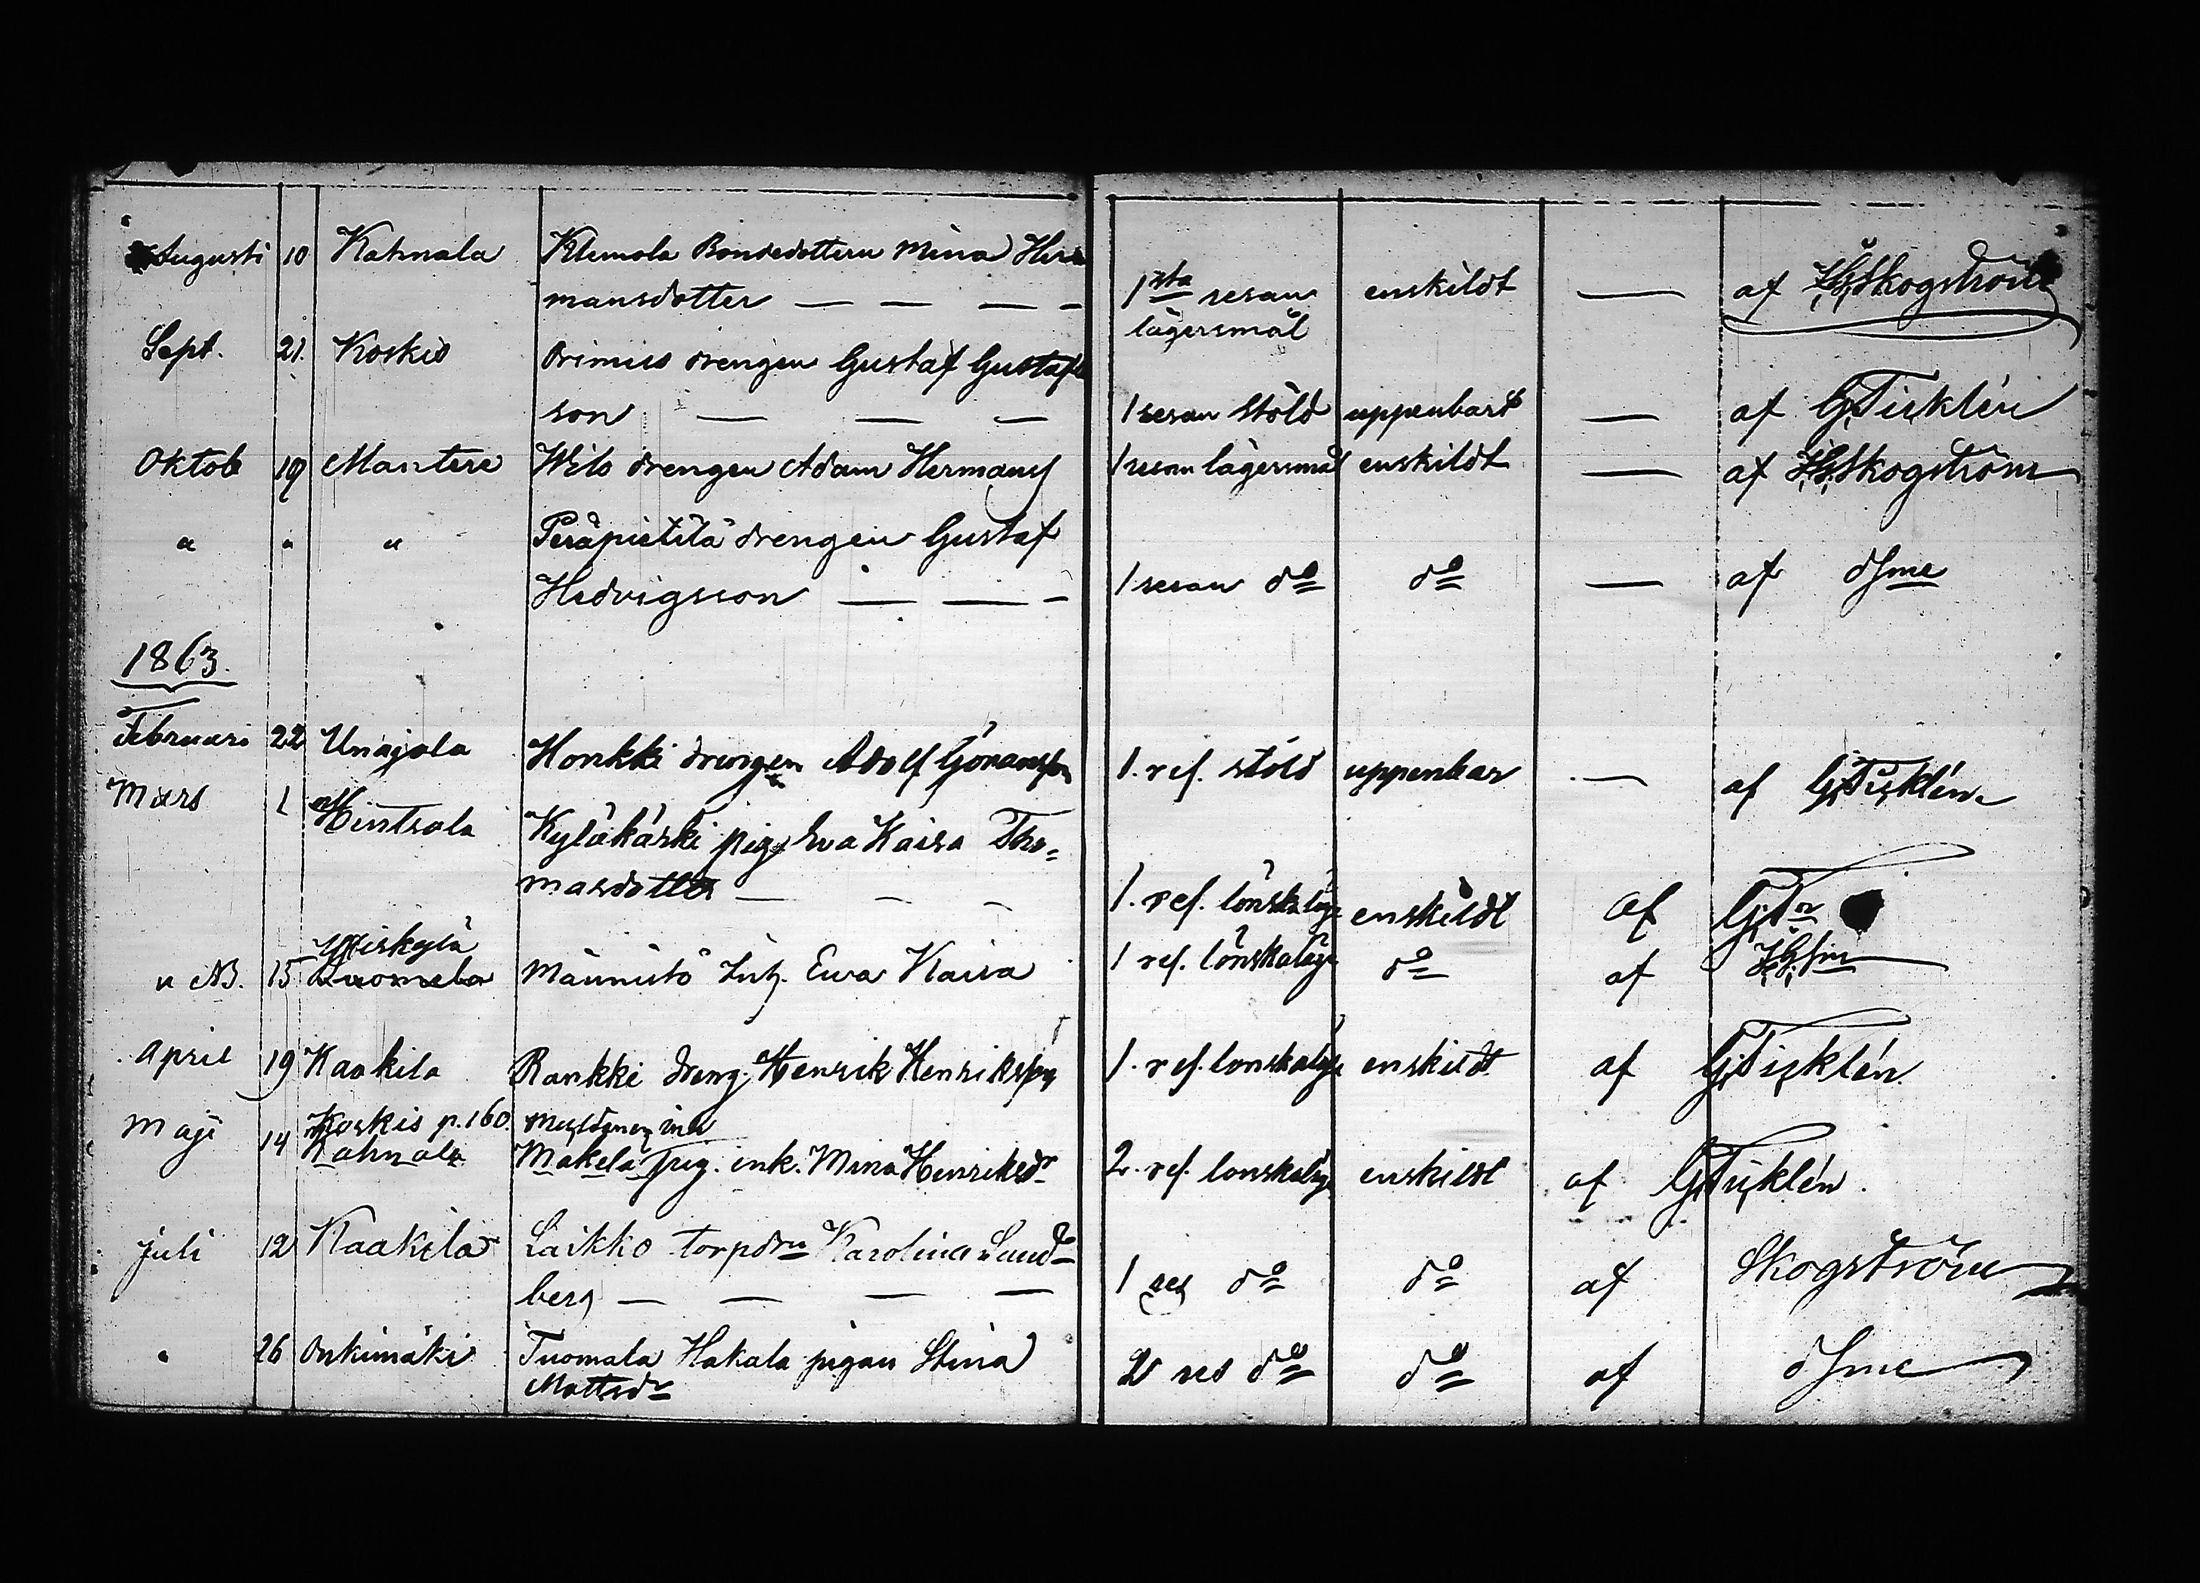 Augusti 10 Kahnala Klemola Bondedottern Mina Her
mansdotter — — — — 1sta resan enskildt — af HG Skogström
lägersmål
Sept. 21. Koskis Primus drengen Gustaf Gustafs
son — — — 1 resan Stöld uppenbart — af G Ticklén
Oktob 19 Mantere Wilo drengen Adam Hermans 1 resan lägersmål enskildt — af HG Skogström
" " " Peräpietilä drengen Gustaf
Hedvigsson — — — 1 resan do do — af dsme
1863.
Februari 22 Unajala Honkki drengen Adolf Göransson 1. res. stöld uppenbar — af G Ticklén
Mars 1 Hintsala Kyläkärki pig. Eva Kaisa Tho=
masdotter — — — 1. res. lönskaläge enskildt af G. Tn
Yliskylä
" NB. 15 Tuomela Männistö Inh. Ewa Kaisa 1 res. lönskaläge do af HGSm
April 19 Kaakila Rankki dreng. Henrik Henriksson 1. res. lönskaläge enskildt af G Ticklén.
Koskis p. 160.
Maji 14 Kahnala Mäkelä pig. enk. Mina Henriksdr 2. res. lönskaläg enskildt af G Ticklén.
Juli 12 Kaakila Laikko torpdrn Karolina Sand=
berg — — — — 1 res do do af Skogström
" 26 Onkimäki Tuomala Hakala pigan Stina 2 res do do af dsme
Mattsdr